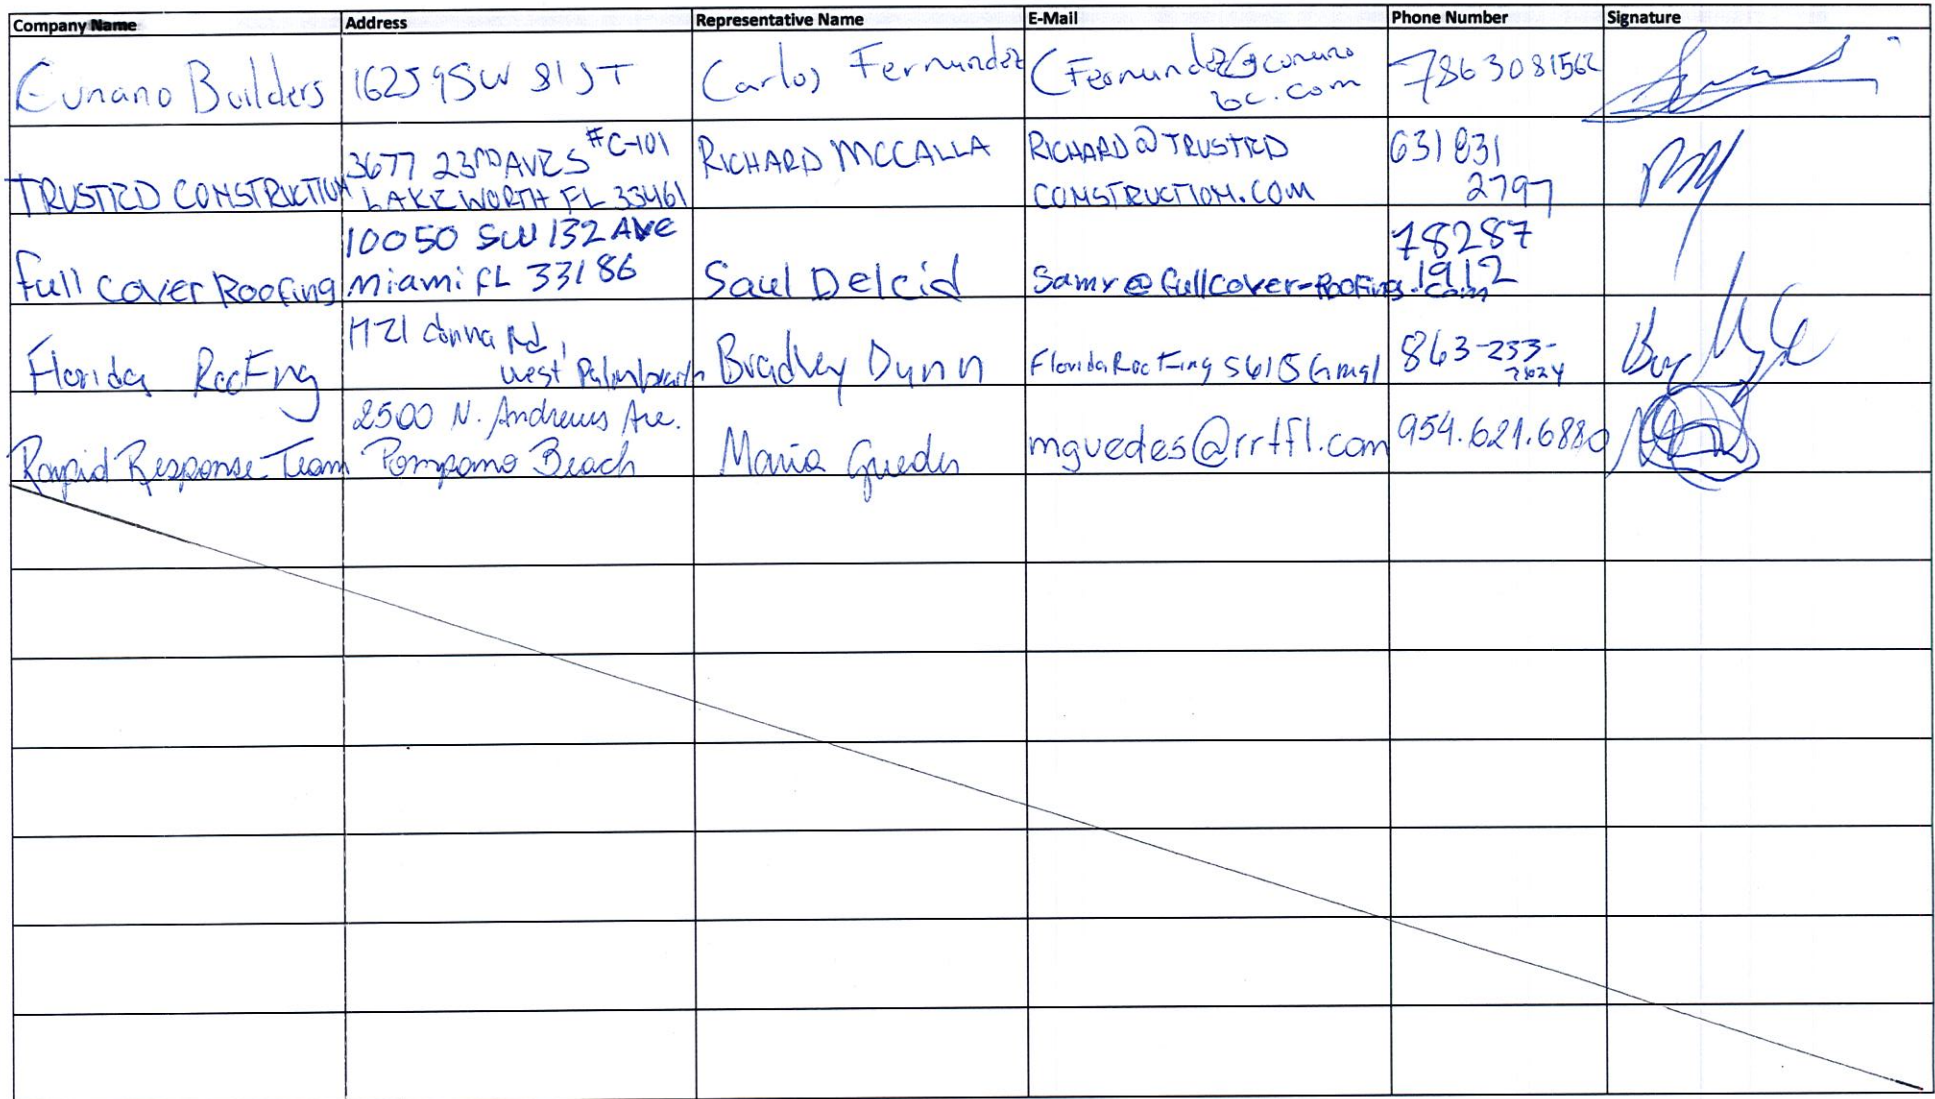 Company Name Address Representative Name E-Mail Phone Number Signature
Cunano Builders 16259 SW 81 ST Carlos Fernandez CFernandez@cunano
bc.com 786 3081562
TRUSTED CONSTRUCTION 3677 23RD AVE S #C-101
LAKE WORTH FL 33461 RICHARD MCCALLA RICHARD@TRUSTED
CONSTRUCTION.COM 631 831
2797
Full Cover Roofing 10050 SW 132 AVE
Miami FL 33186 Saul Delcid Samr@fullcover-Roofing.com 78287
1912
Florida RooFing 1721 Donna Rd,
West Palm beach Bradley Dunn FloridaRooFing561@Gmail 863-253-
7624
Rapid Response Team 2500 N. Andrews Ave.
Pompano Beach Maria Guedes mguedes@rrtfl.com 954.621.6880